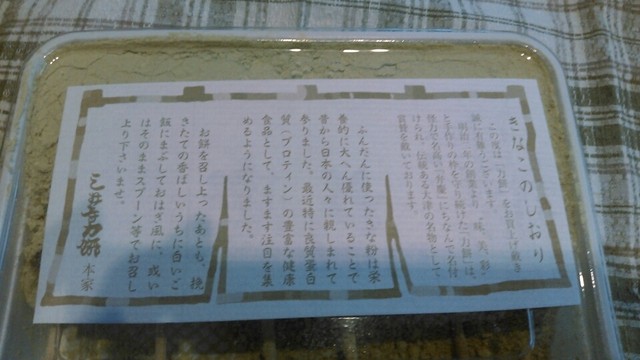 きなこのしおり
この度は「力餅」をお買上げ戴き
誠に有難うございます。
明治二年の創業より、"味、美、彩"
と手作りの枠を守り続けた「力餅」は、
怪力で名高い「弁慶」にちなんで名付
けられ、伝統ある大津の名物として
賞賛を戴いております。
ふんだんに使ったきな粉は栄
養的に大へん優れていることで
昔から日本の人々に親しまれて
参りました。最近特に良質蛋白
質(プロティン)の豊富な健康
食品として、ますます注目を集
めるようになりました。
お餅を召し上ったあとも、挽
きたての香ばしいうちに白いご
飯にまぶしておはぎ風に、或い
はそのままスプーン等でお召し
上り下さいませ。
三井寺力餅
本家